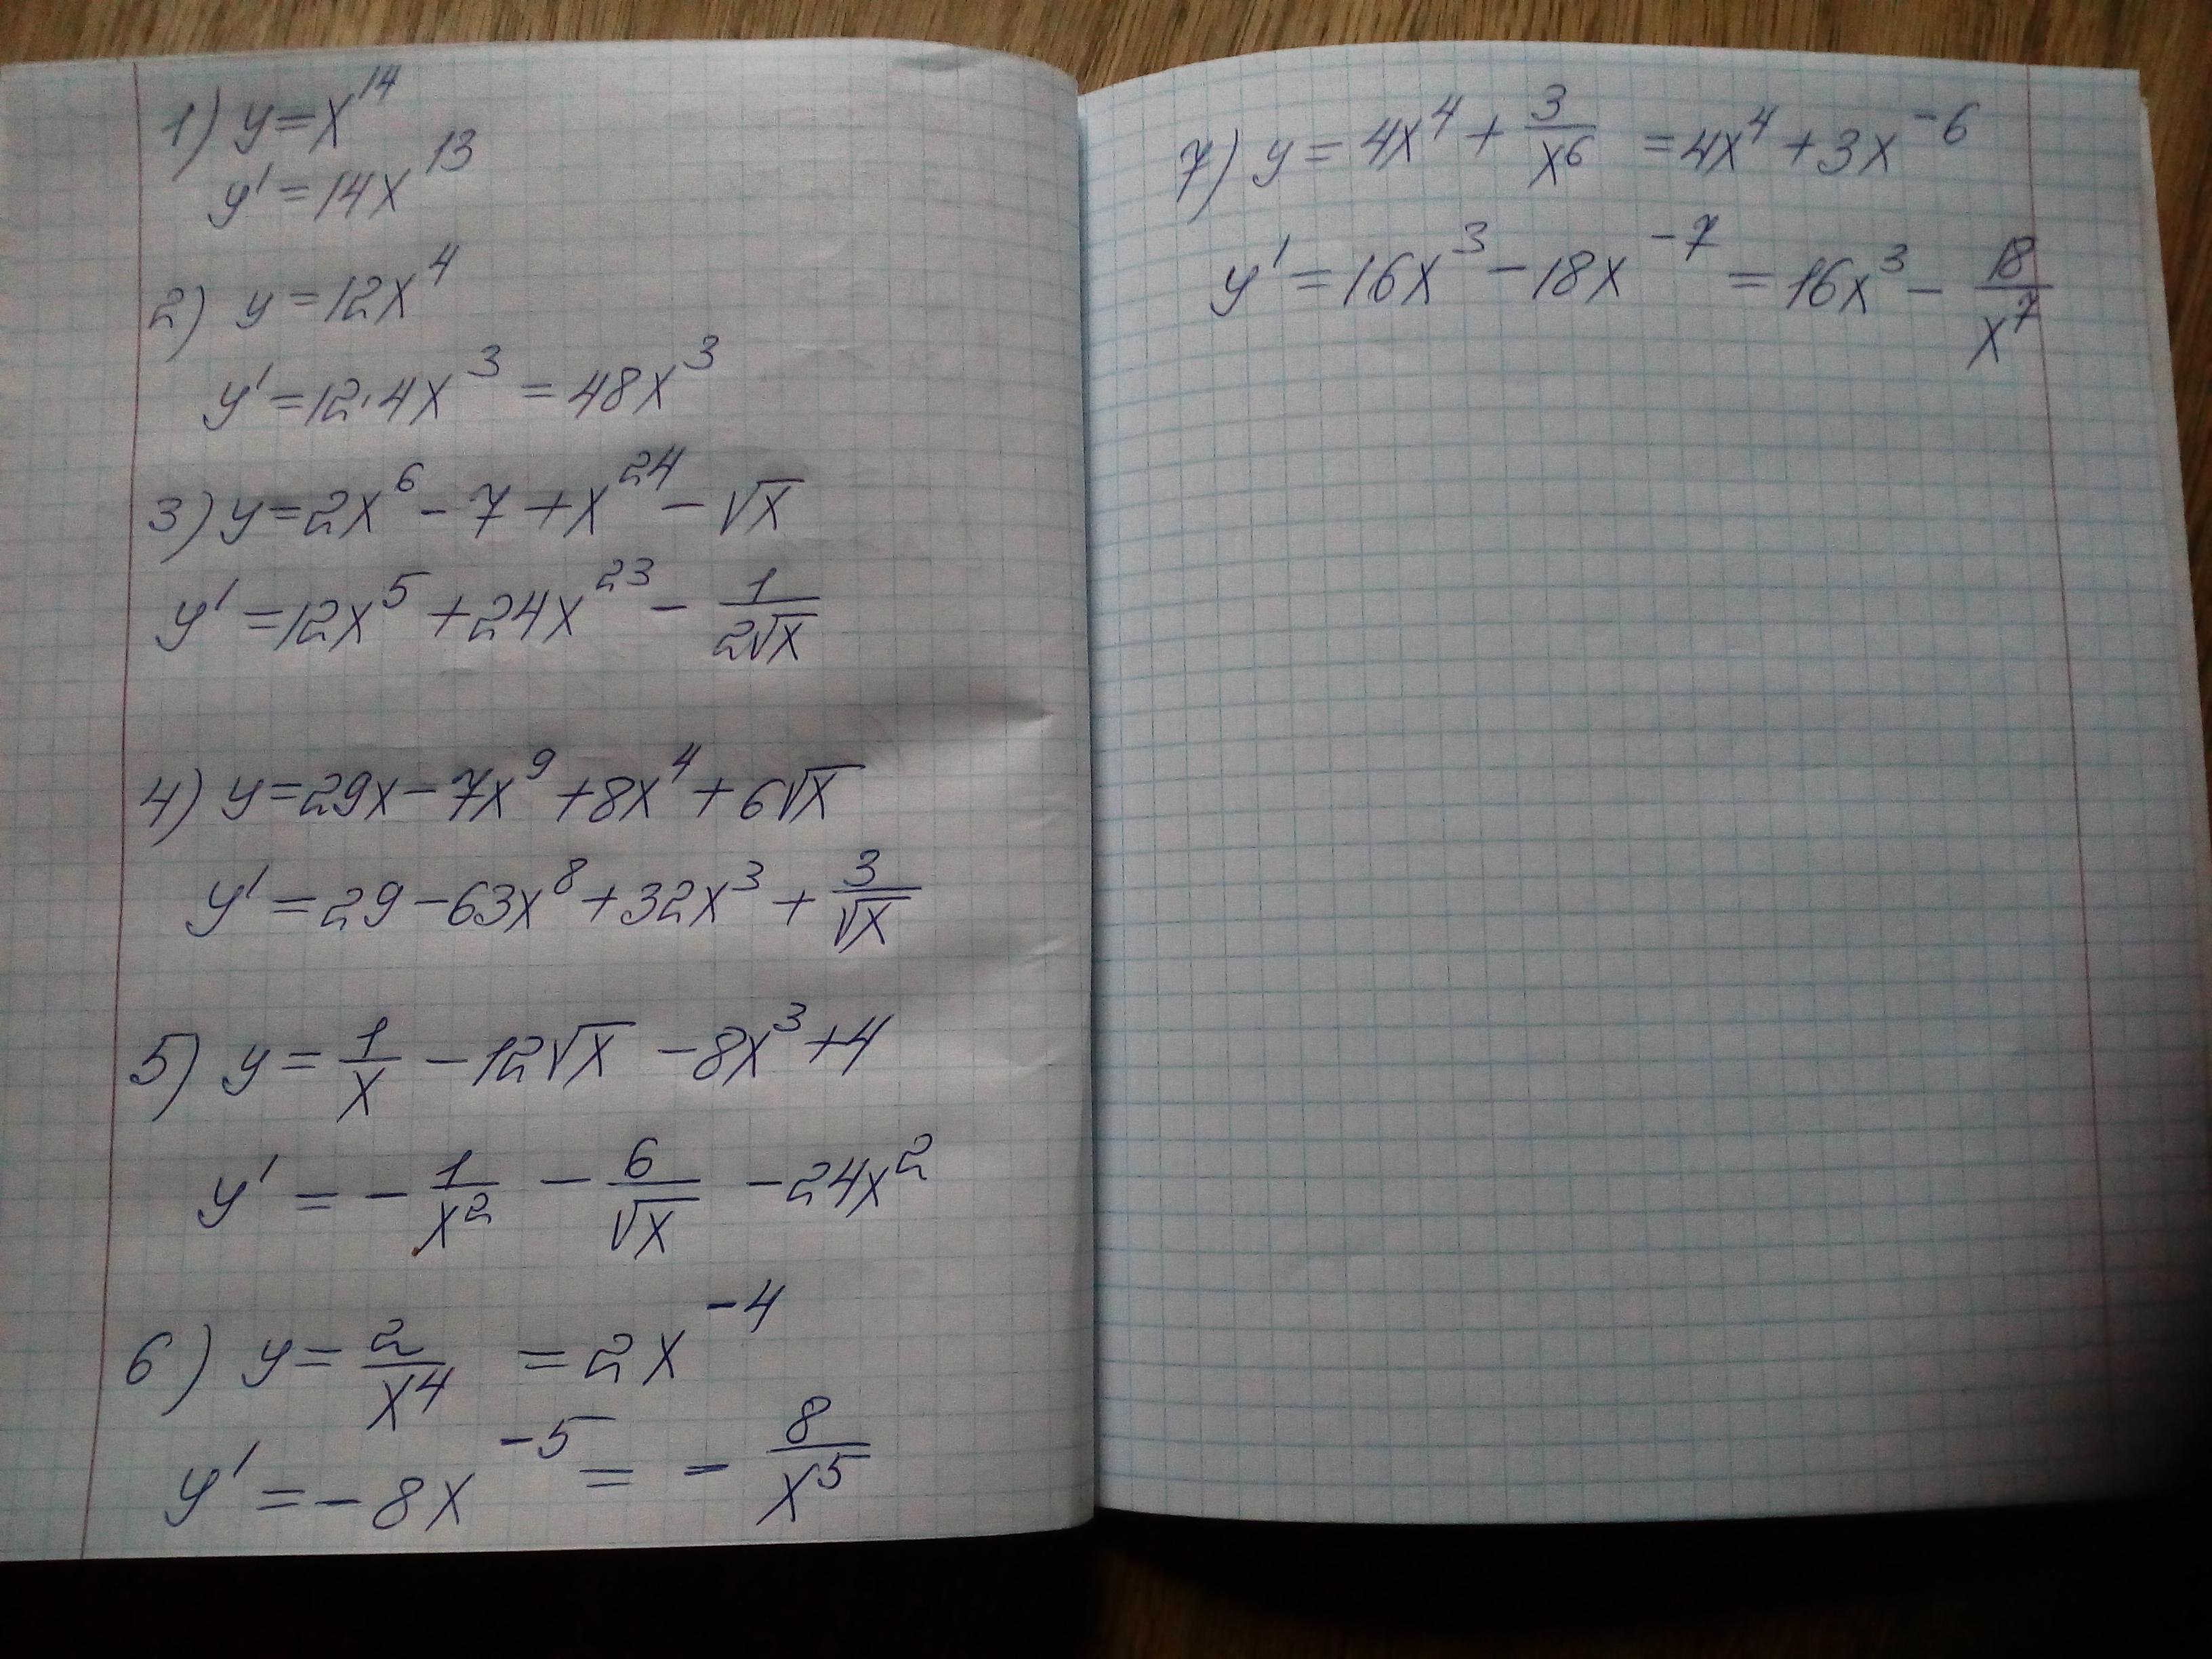 1) y=x^14
y'=14x^13
2) y=12x^4
y'=12·4x^3=48x^3
3) y=2x^6-7+x^24-√x
y'=12x^5+24x^23-1/(2√x)
4) y=29x-7x^9+8x^4+6√x
y'=29-63x^8+32x^3+3/√x
5) y=1/x-12√x-8x^3+4
y'=-1/x^2-6/√x-24x^2
6) y=2/x^4=2x^-4
y'=-8x^-5=-8/x^5
7) y=4x^4+3/x^6=4x^4+3x^-6
y'=16x^3-18x^-7=16x^3-18/x^7